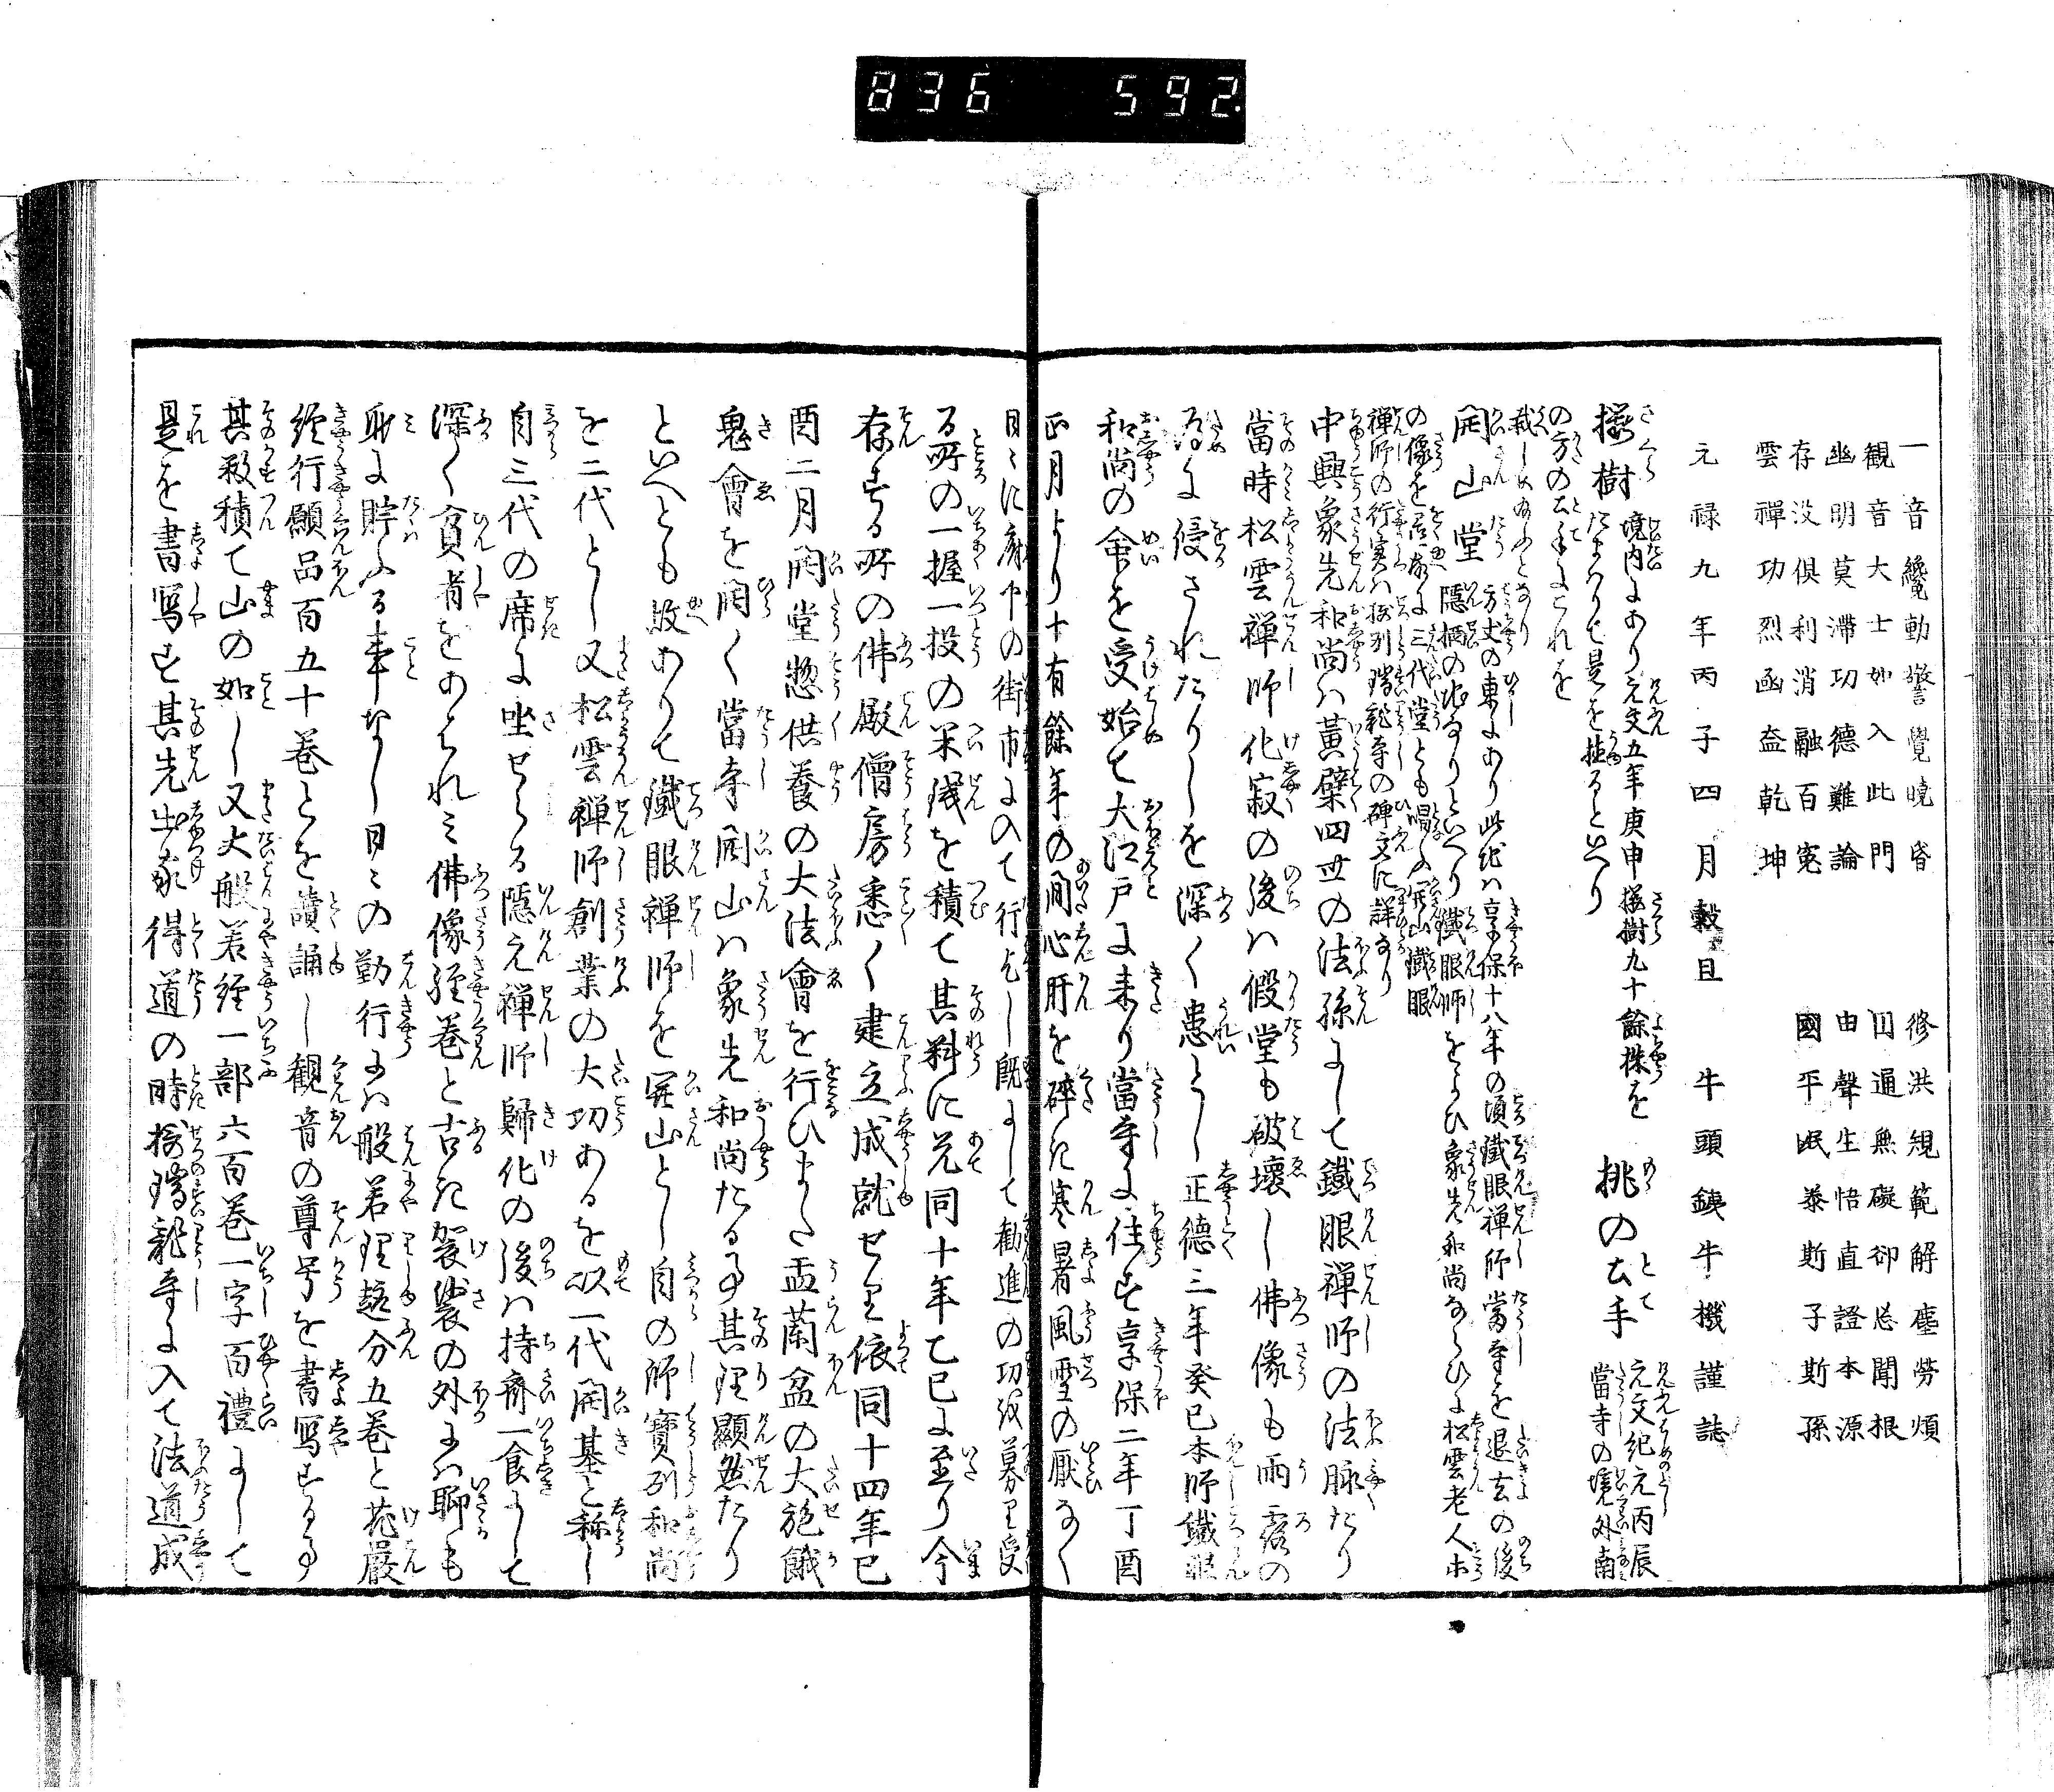 836 592
一音纔動警覺曉昏 修洪規範解塵勞煩
観音大士如入此門 圓通無礙卻忘聞根
幽明莫滯功德難論 由聲生悟直證本源
存没俱利消融百寃 國平民泰斯子斯孫
雲禪功烈函葢乾坤
元禄九年丙子四月穀旦 牛頭鉄牛機謹誌
櫻樹 境内にあり元文五年庚申櫻樹九十餘株を
たまハりて是を植るといへり
桃の古手 元文紀元丙辰
當寺の境外南
の方の古手にこれを
栽しめ給ふとなり
開山堂 方丈の東にあり此地ハ享保十八年の頃鐵眼禅師當寺を退去の後
隱栖の地なりといへり鐵眼師をよひ象先和尚ならひに松雲老人木
の像を安置に三代堂とも唱ふ開山鐵眼
禅師の行実ハ摂列瑞龍寺の碑文に詳なり
中興象先和尚ハ黃檗四世の法孫にして鐵眼禅師の法脉たり
當時松雲禅師化寂の後ハ假堂も破壞し佛像も雨露の
為に侵されたりしを深く患とし正德三年癸巳本師鐵眼
和尚の命を受始て大江戸に来り當寺に住す享保二年丁酉
正月より十有餘年の間心肝を碎き寒暑風雪の厭なく
日々に府中の街市に入て行乞し既にして勸進の功を募り受
る所の一握一投の米銭を積て其料に充同十年乙巳に至り今
存する所の佛殿僧房悉く建立成就せり依同十四年己
酉二月開堂惣供養の大法會を行ひまた盂蘭盆の大施餓
鬼會を開く當寺開山ハ象先和尚たる事其理顯然たり
といへとも故ありて鐵眼禅師を開山とし自の師寳列和尚
を二代とし又松雲禅師創業の大功あるを以一代開基と称し
自三代の席に坐せらる隱元禅師歸化の後ハ持斎一食にして
深く貧者をあはれミ佛像經巻と古き袈裟の外にハ聊も
身に貯ふる事なし日々の勤行にハ般若理趣分五巻と花嚴
經行願品百五十巻とを讀誦し観音の尊号を書写する事
其数積て山の如し又大般若經一部六百巻一字百禮にして
是を書写す其先出家得道の時摂瑞龍寺に入て法道成